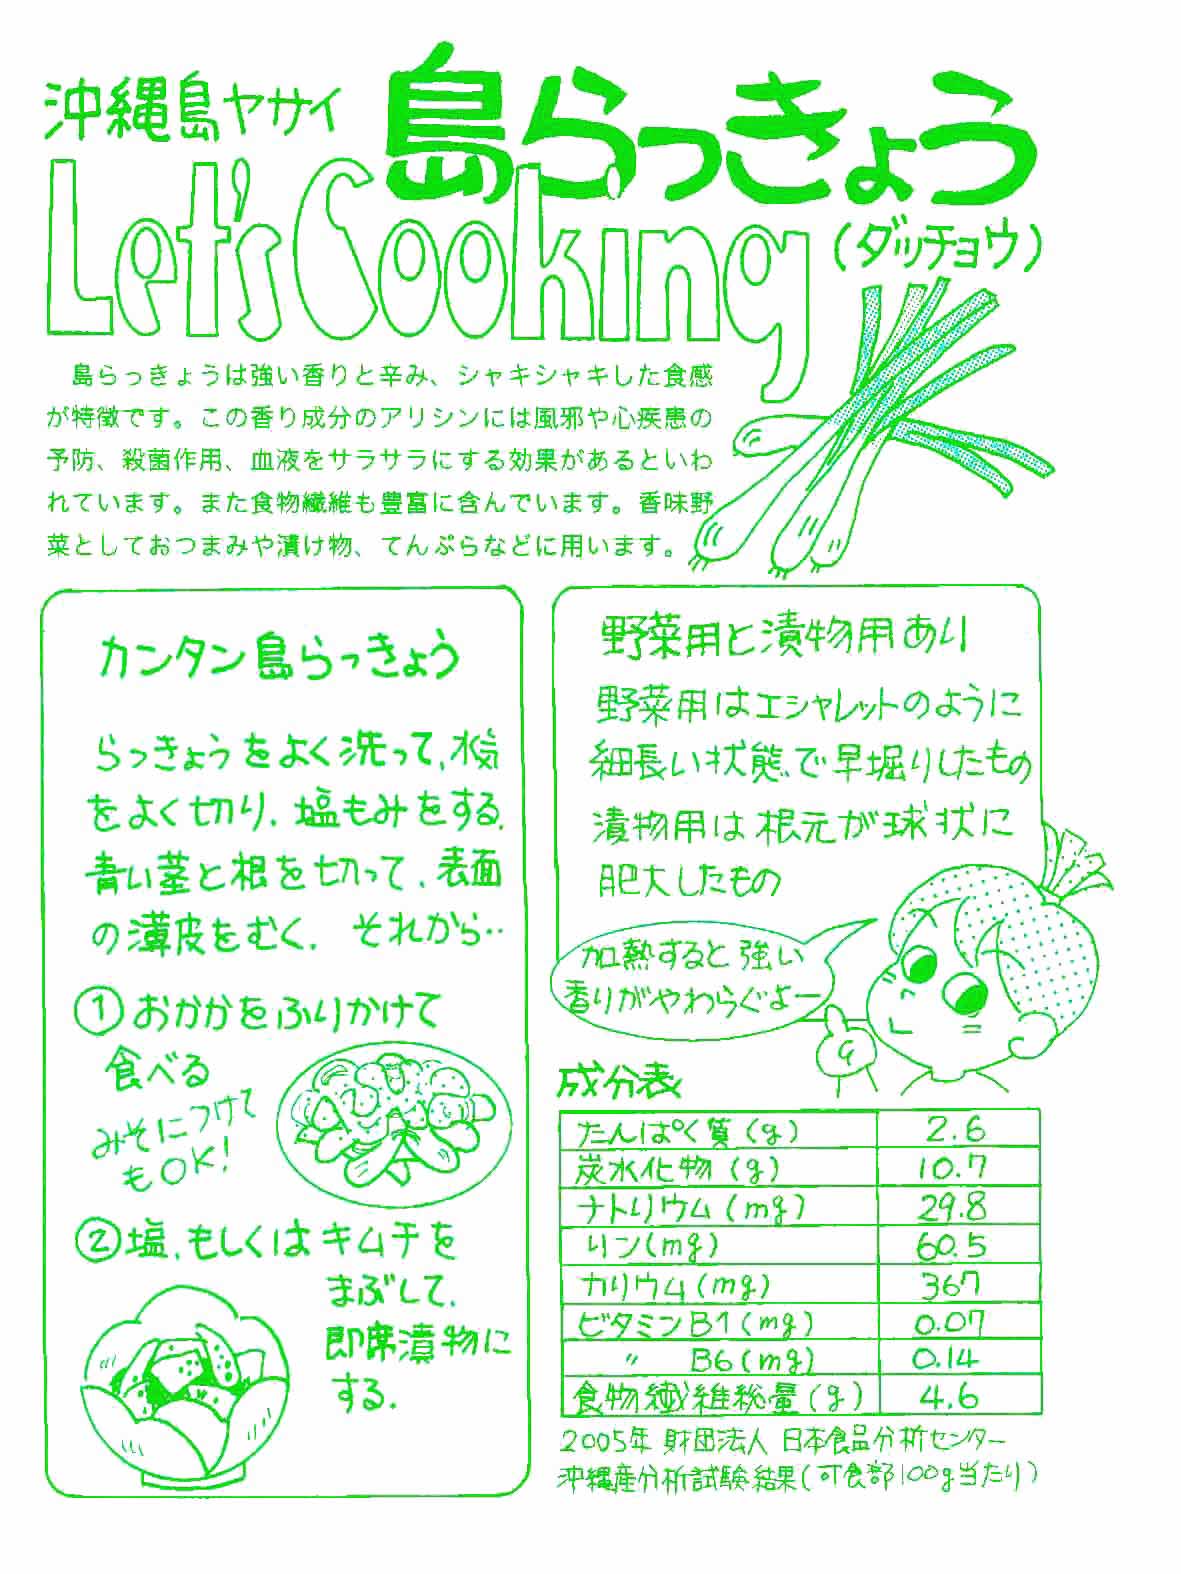 沖縄島ヤサイ
島らっきょう
Let's Cooking
(ダッチョウ)
島らっきょうは強い香りと辛み、シャキシャキした食感
が特徴です。この香り成分のアリシンには風邪や心疾患の
予防、殺菌作用、血液をサラサラにする効果があるといわ
れています。また食物繊維も豊富に含んでいます。香味野
菜としておつまみや漬け物、てんぷらなどに用います。
カンタン島らっきょう
らっきょうをよく洗って、水気
をよく切り、塩もみをする。
青い茎と根を切って、表面
の薄皮をむく。それから‥
①おかかをふりかけて
食べる
みそにつけて
もOK!
②塩、もしくはキムチを
まぶして、
即席漬物に
する。
野菜用と漬物用あり
野菜用はエシャレットのように
細長い状態で早堀りしたもの
漬物用は根元が球状に
肥大したもの
加熱すると強い
香りがやわらぐよー
成分表
たんぱく質(g) 2.6
炭水化物(g) 10.7
ナトリウム(mg) 29.8
リン(mg) 60.5
カリウム(mg) 367
ビタミンB1(mg) 0.07
〃 B6(mg) 0.14
食物繊維総量(g) 4.6
2005年 財団法人 日本食品分析センター
沖縄産分析試験結果(可食部100g当たり)